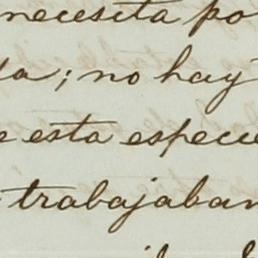 necesita po
da; no hay
e esta especie
trabajaban